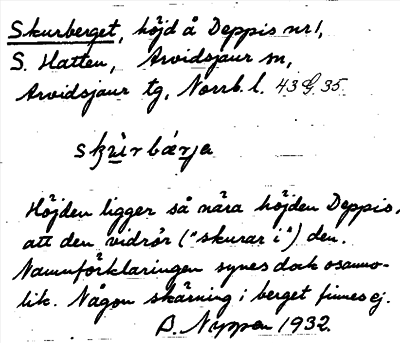 Skurberget, höjd å Deppis nr 1,
S. Hatten, Arvidsjaur sn,
Arvidsjaur tg, Norrb. l. 43 G. 35
skù̱rbá̱rja
Höjden ligger så nära höjden Deppis,
att den vidrör ("skurar i") den.
Namnförklaringen synes dock osanno-
lik. Någon skärning i berget finnes ej.
B. Nyppen 1932.